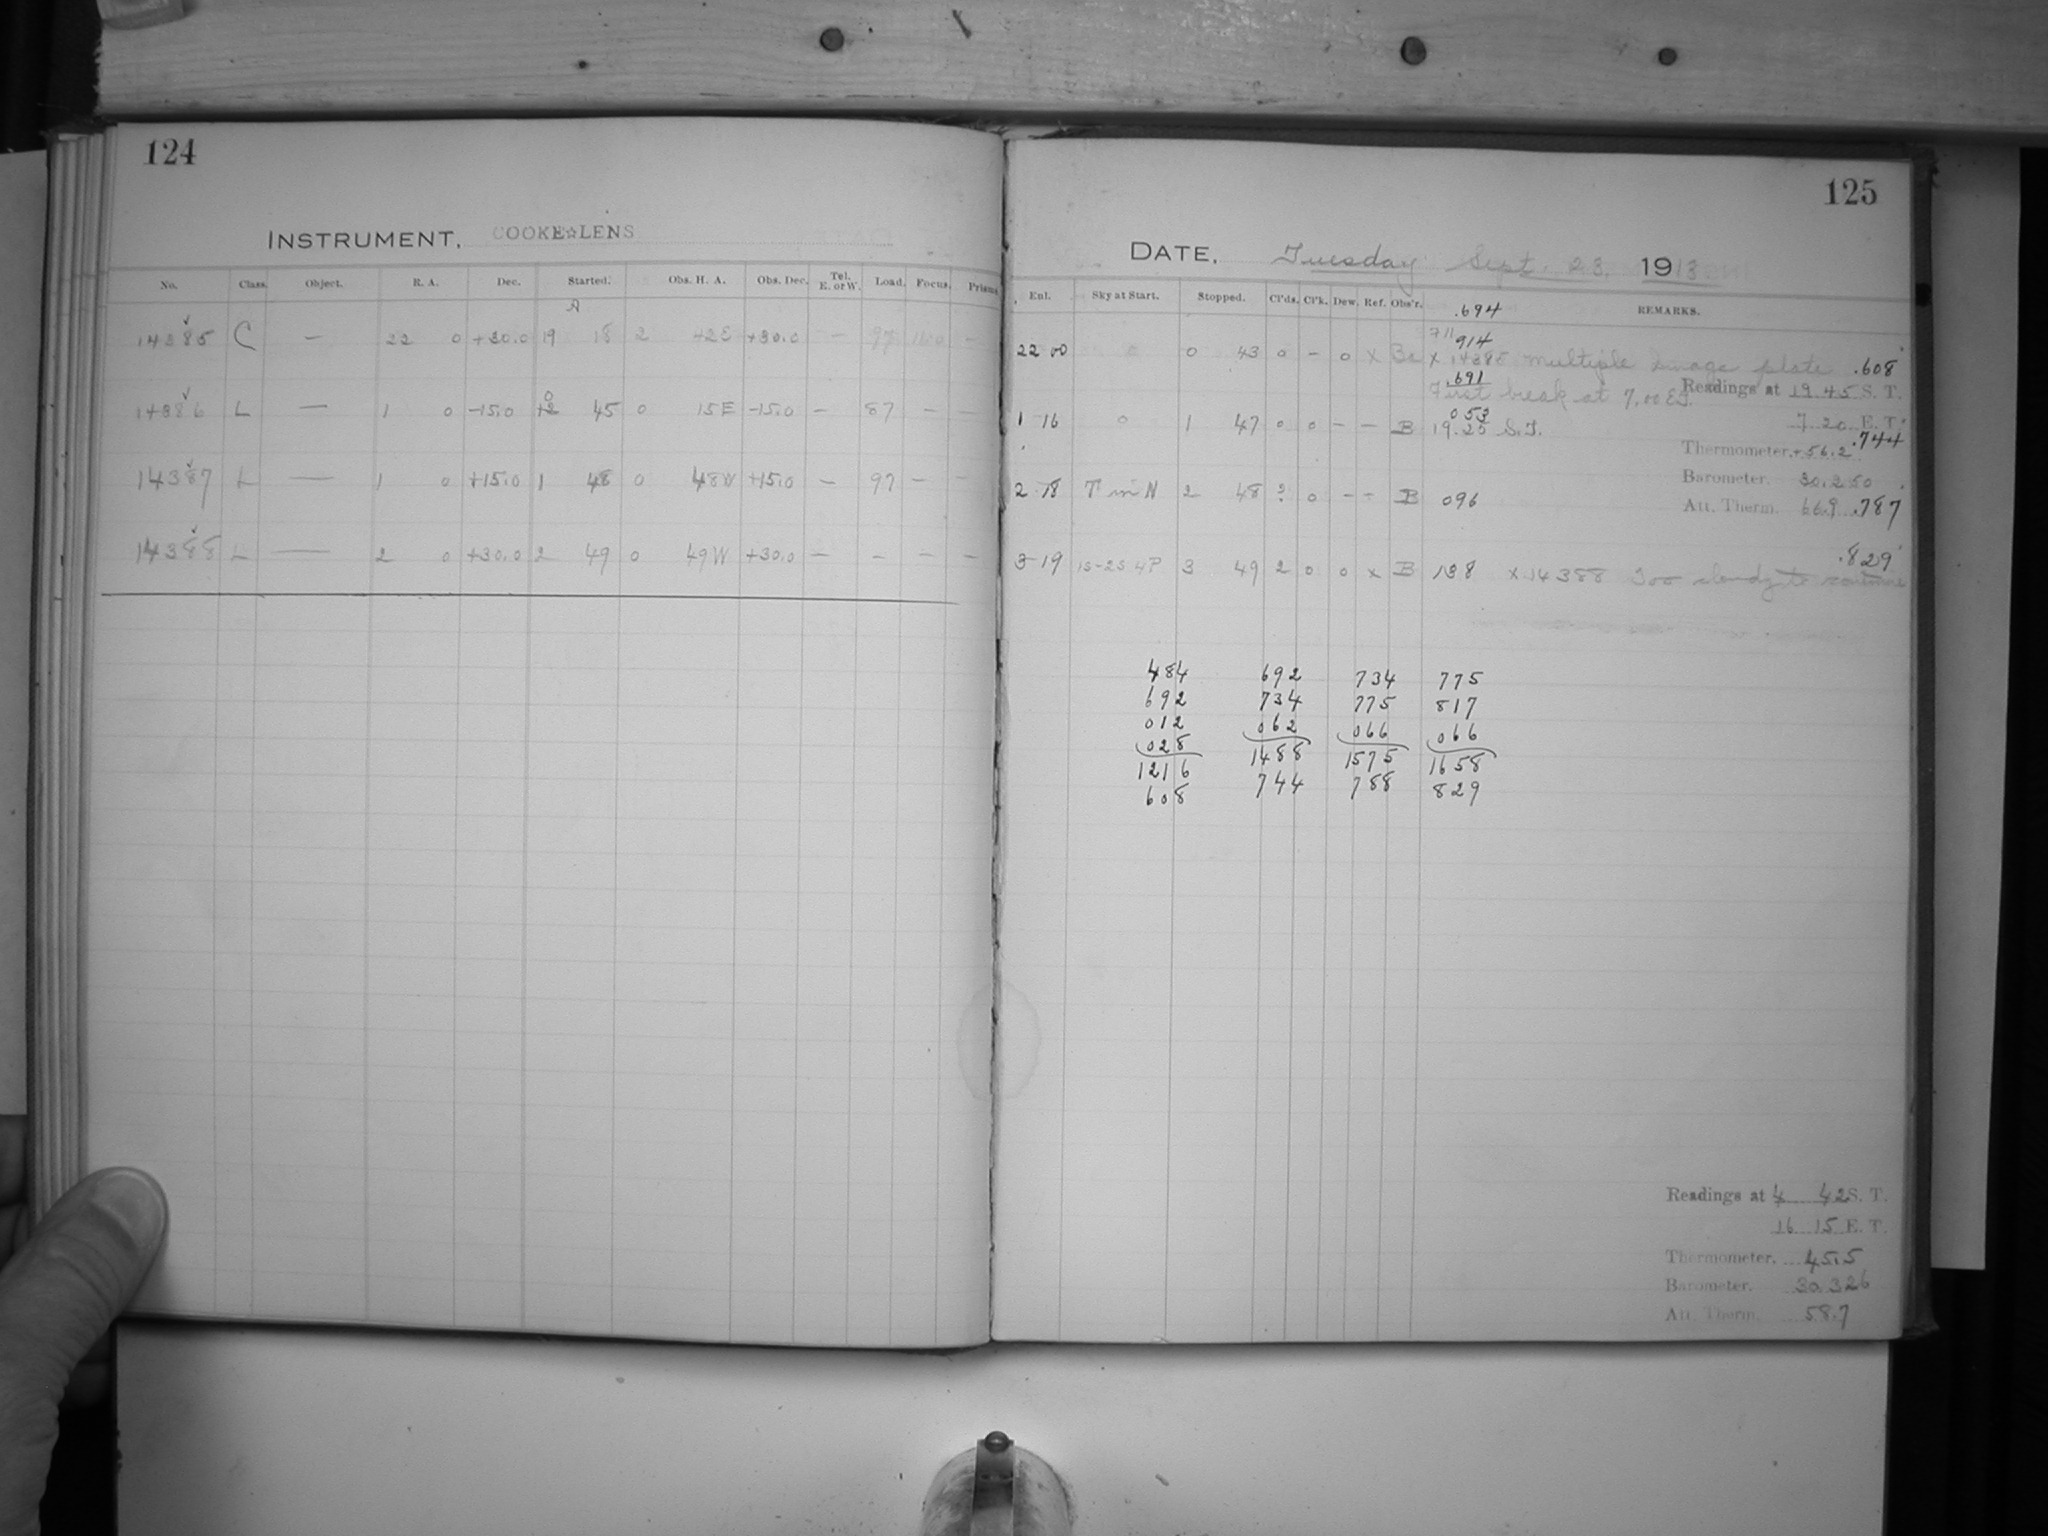 124
INSTRUMENT. COOKE☆LENS
No. Class. Object. R. A. Dec. Started. Obs. H. A. Obs. Dec. Tel. E. or W. Load. Focus. Prisms
14385 C — 22 0 +30.0 19 18 2 42E +30.0 — —
14386 L — 1 0 -15.0 0 45 0 15E -15.0 — 87 — —
14387 L — 1 0 +15.0 1 48 0 48W +15.0 — 97 — —
14388 L — 2 0 +30.0 2 49 0 49W +30.0 — — — —
125
DATE. Tuesday Sept. 23, 1913
Enl. Sky at Start. Stopped. Cl'ds. Cl'k. Dew. Ref. Obs'r. REMARKS.
.694
711
914
22 00 0 0 43 0 — 0 x x 14385 multiple image plate .608
.691
First break at 7.00 E.T. Readings at 19 45 S. T.
053
1 16 0 1 47 0 0 — — B 19.25 S.T. 7 20 E. T.
.744
Thermometer. +56.2
Barometer. 30.250
2 18 T in N 2 48 ? 0 — — B 096
Att. Therm. 66.9 .787
.829
3 19 1S-2S 4P 3 49 2 0 0 x B 138 x 14388 Too cloudy to continue
484 692 734 775
692 734 775 817
012 062 066 066
028 1488 1575 1658
1216 744 788 829
608
Readings at 4 42 S. T.
16 15 E. T.
Thermometer. 45.5
Barometer. 30.326
Att. Therm. 58.7